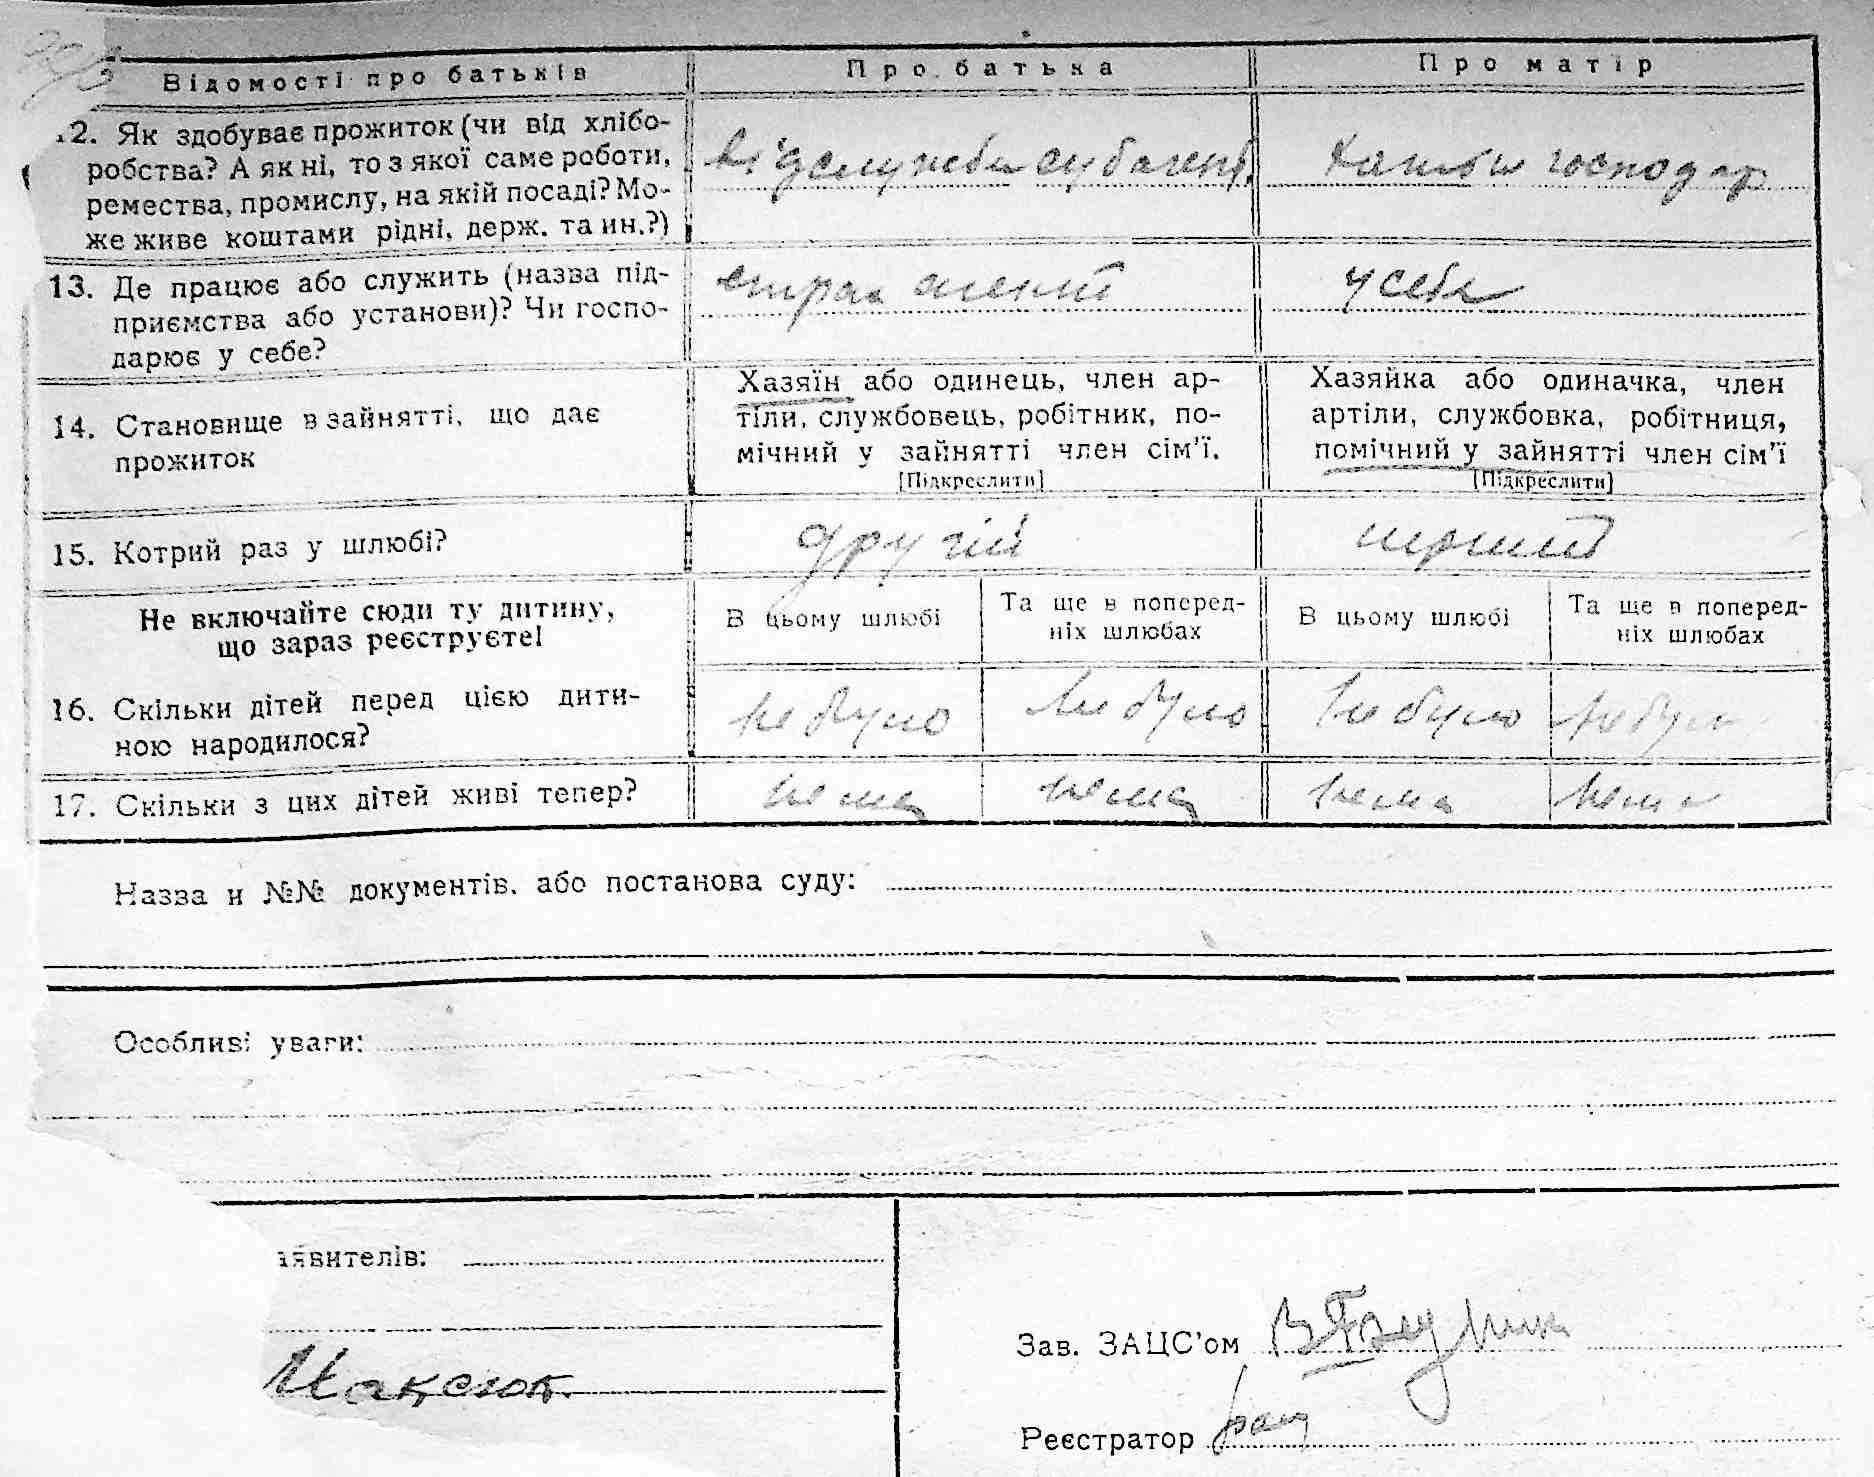 Відомості про батьків
Про батька
Про матір
12. Як здобуває прожиток (чи від хлібо-
робства? А як ні, то з якої саме роботи,
ремества, промислу, на якій посаді? Мо-
же живе коштами рідні, держ. та ин.?)
від служби субагент.
господар
13. Де працює або служить (назва під-
приємства або установи)? Чи госпо-
дарює у себе?
страх агент
у себе
14. Становище в зайнятті, що дає
прожиток
Хазяїн або одинець, член ар-
тіли, службовець, робітник, по-
мічний у зайнятті член сім'ї.
[Підкреслити]
Хазяйка або одиначка, член
артіли, службовка, робітниця,
помічний у зайнятті член сім'ї
[Підкреслити]
15. Котрий раз у шлюбі?
другий
перший
Не включайте сюди ту дитину,
що зараз реєструєте!
В цьому шлюбі
Та ще в поперед-
ніх шлюбах
В цьому шлюбі
Та ще в поперед-
ніх шлюбах
16. Скільки дітей перед цією дити-
ною народилося?
не було
не було
не було
не було
17. Скільки з цих дітей живі тепер?
нема
нема
нема
нема
Назва и №№ документів. або постанова суду:
Особливі уваги:
аявителів:
Максюк
Зав. ЗАЦС'ом
Реєстратор